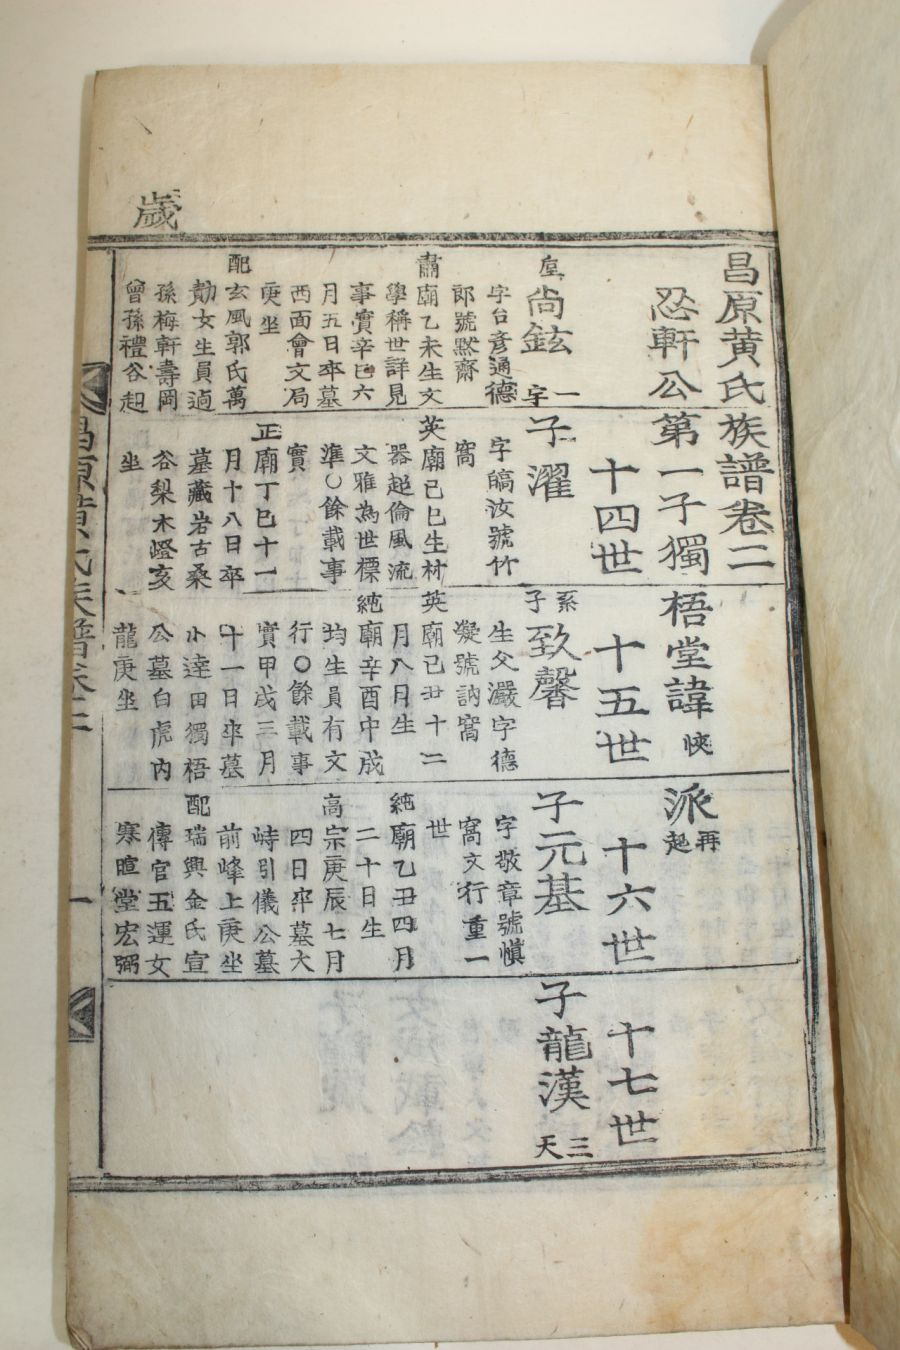 歲
昌原黃氏族譜卷二
忍軒公第一子獨梧堂諱悏派再起
十四世
十五世
十六世
十七世
尙鉉
一字
字台彥通德
郎號默齋
肅廟乙未生文
學稱世詳見
事實辛巳六
月五日卒墓
西面會文局
庚坐
配玄風郭氏萬
勣女生員逈
孫梅軒壽岡
曾孫禮谷起
子濯
字皜汝號竹
窩
英廟己巳生材
器超倫風流
文雅為世標
準○餘載事
實
正廟丁巳十一
月十八日卒
墓藏岩古桑
谷梨木嶝亥
坐
系子致馨
生父濯字德
凝號訥窩
英廟己丑十二
月八月生
純廟辛酉中成
均生員有文
行○餘載事
實甲戌三月
十一日卒墓
小逹田獨梧
公墓白虎內
龍庚坐
子元基
字敬章號愼
窩文行重一
世
純廟乙丑四月
二十日生
高宗庚辰七月
四日卒墓大
峙引儀公墓
前峰上庚坐
配瑞興金氏宣
傳官五運女
寒暄堂宏弼
子龍漢
三天
昌原黃氏族譜卷二
一